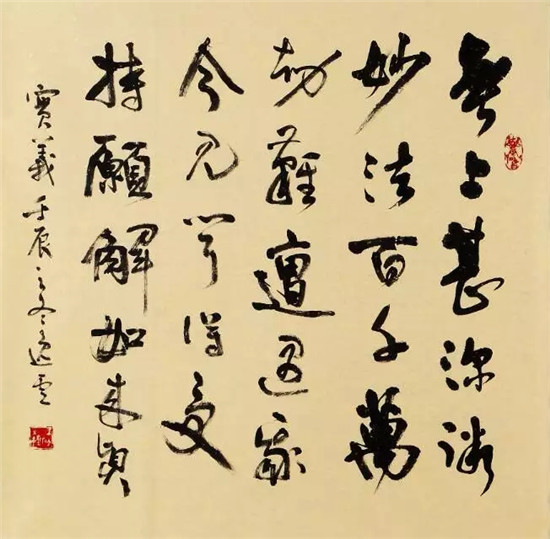 無上甚深微
妙法百千萬
劫難遭遇我
今見聞得受
持願解如來真
實義 壬辰之冬